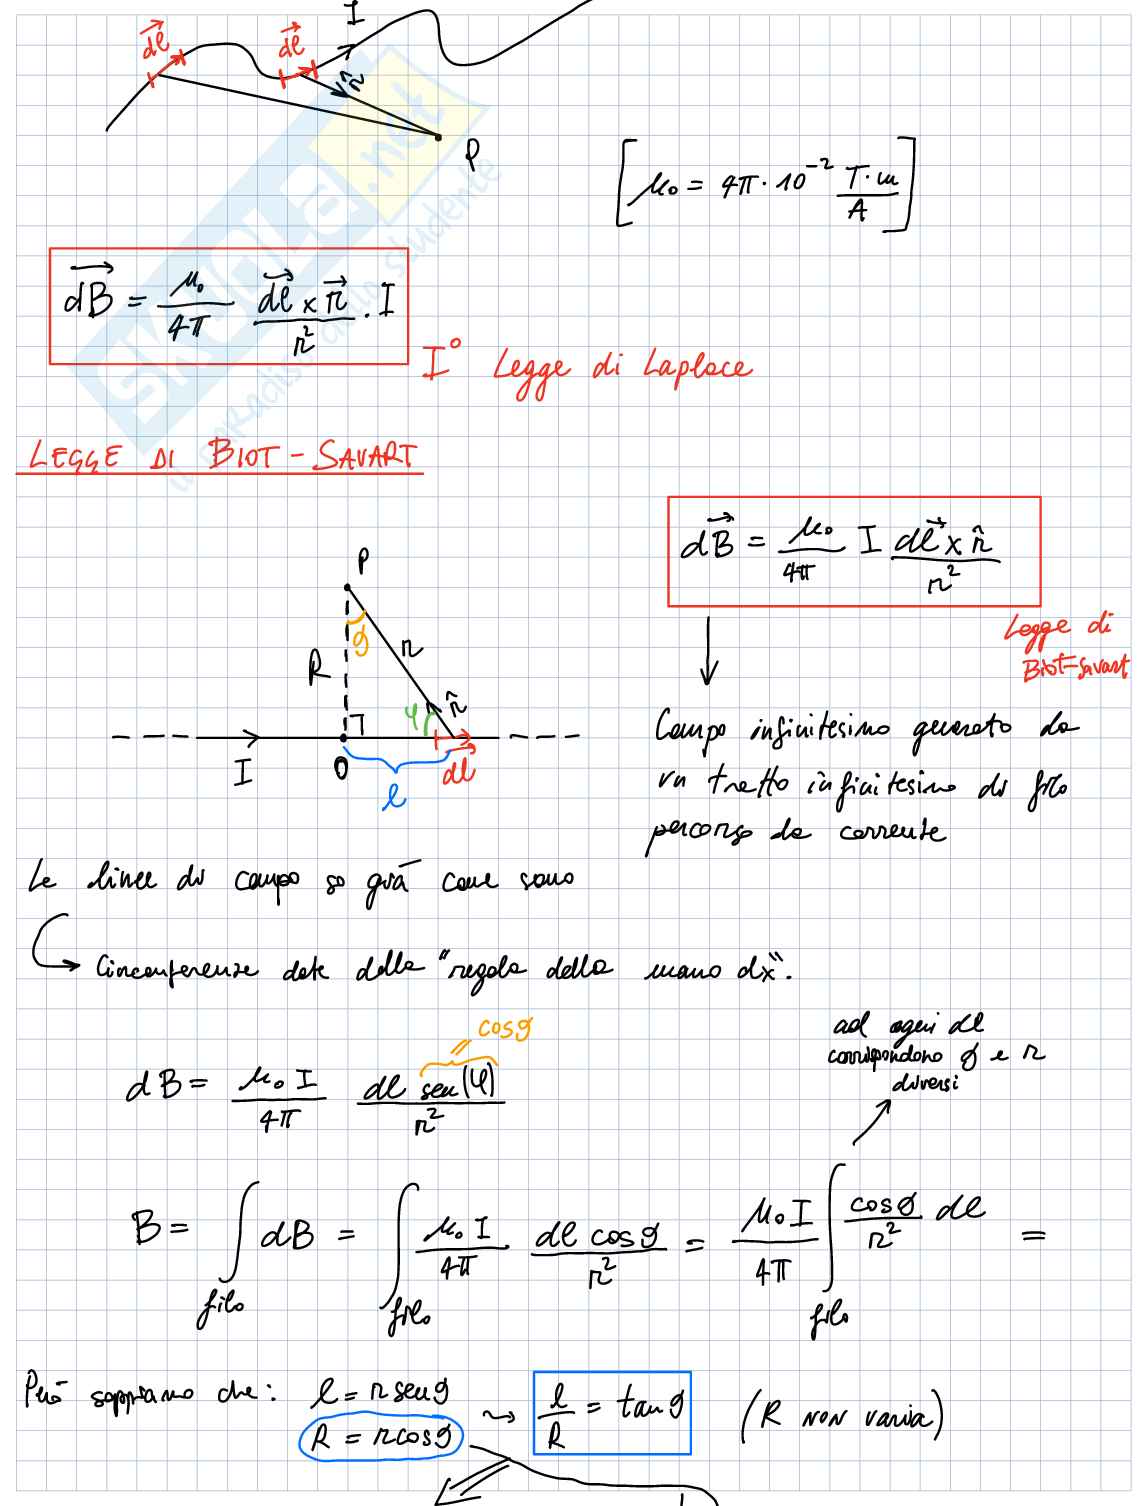 dl⃗ dl⃗ I
r̂
P
[μ₀ = 4π · 10⁻² T·m/A]
dB⃗ = μ₀/4π dl⃗ × r⃗/r² . I
I° Legge di Laplace
LEGGE DI BIOT-SAVART
dB⃗ = μ₀/4π I dl⃗ × r̂/r²
Legge di
Biot-Savart
P
θ
R r
φ r̂
I O dl
l
Campo infinitesimo generato da
un tratto infinitesimo di filo
percorso da corrente
Le linee di campo so già come sono
Circonferenze date dalla "regola della mano dx".
ad ogni dl
corrispondono θ e r
diversi
= cosθ
dB = μ₀ I/4π dl sen(φ)/r²
B = ∫filo dB = ∫filo μ₀ I/4π dl cosθ/r² = μ₀ I/4π ∫filo cosθ/r² dl =
Però sappiamo che: l = r senθ
R = r cosθ ⇝ l/R = tanθ (R NON varia)
SKUOLA.net
il paradiso dello studente